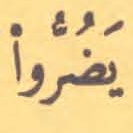 يَضُرُّواْ